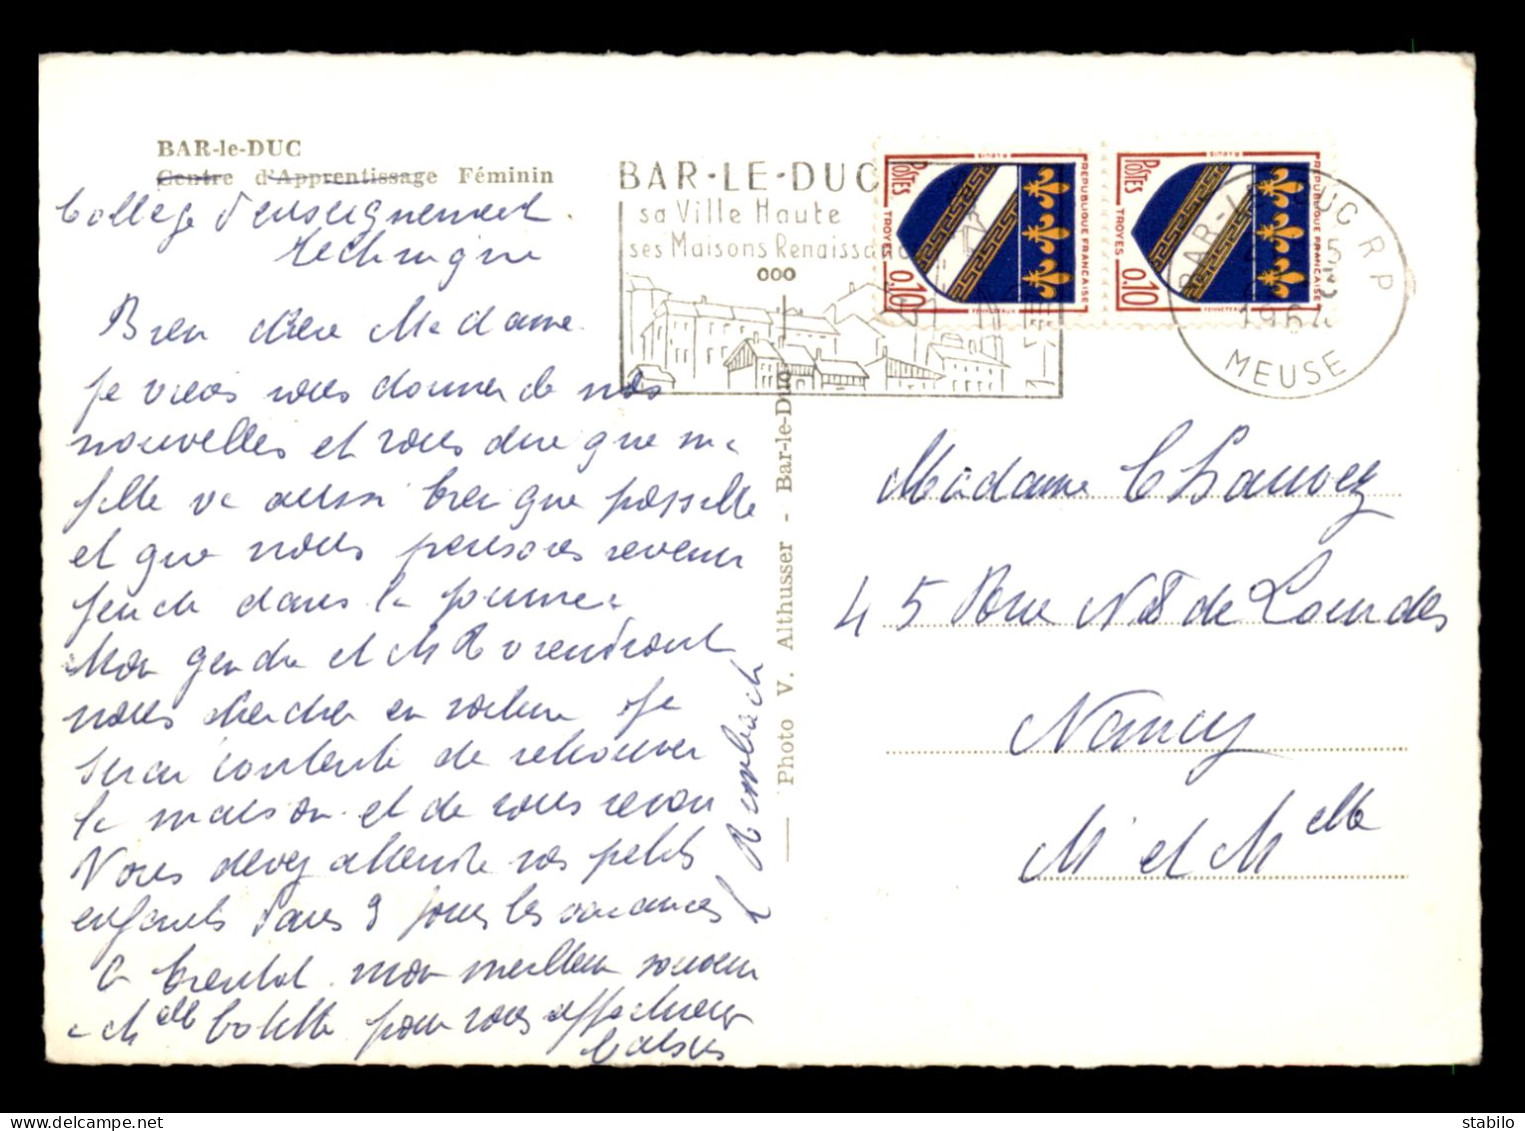 BAR-le-DUC
Centre d'Apprentissage Féminin
Collège d'enseignement
technique
Bien chère Madame
Je viens vous donner de nos
nouvelles et vous dire que ma
fille va aussi bien que possible
et que nous pensons revenir
jeudi dans la journée
Mon gendre et M R viendront
nous chercher en voiture Je
serai contente de retrouver
la maison et de vous revoir
Vous devez attendre vos petits
enfants dans 9 jours les vacances
A bientôt mon meilleur souvenir
a Melle Colette pour vous affectueux
baisers
Photo V. Althusser - Bar-le-Duc
BAR-LE-DUC
sa Ville Haute
ses Maisons Renaissance
POSTES
REPUBLIQUE FRANÇAISE
TROYES
0,10
POSTES
REPUBLIQUE FRANÇAISE
TROYES
0,10
BAR-LE-DUC R P
1964
MEUSE
Madame Chauvez
45 Rue N D de Lourdes
Nancy
M et Melle